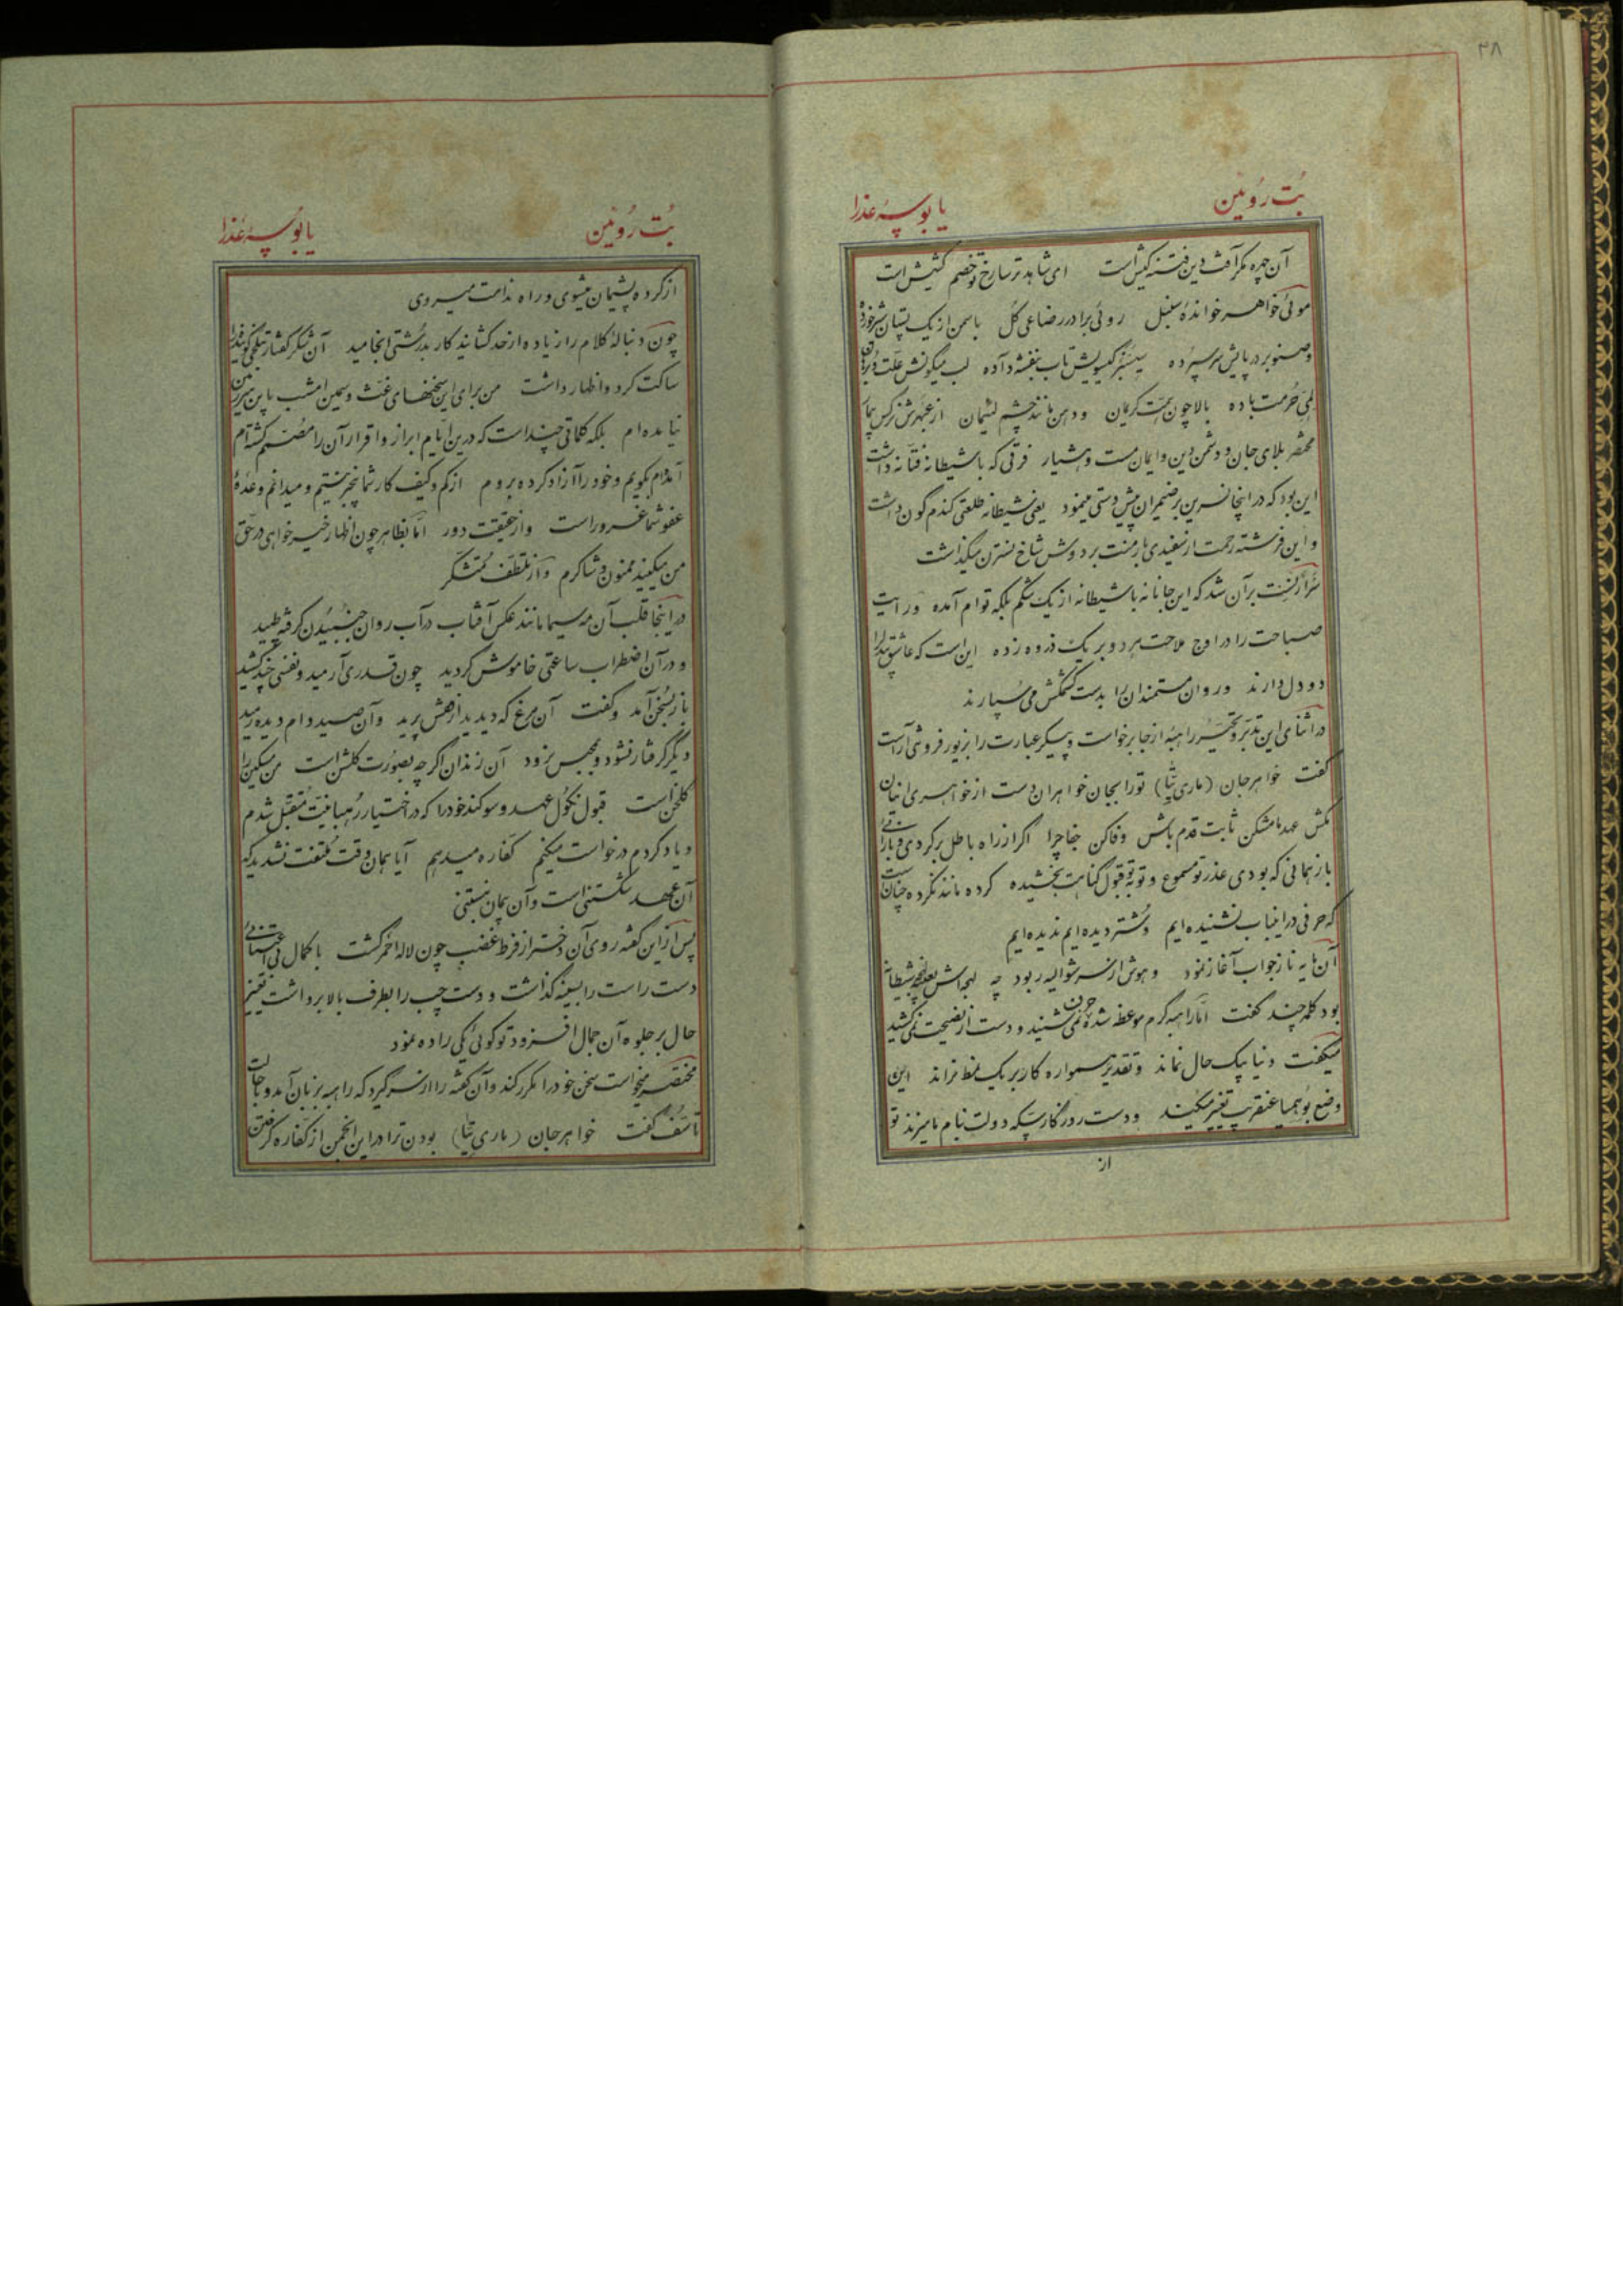 ۳۸
بُت رُوئین یا بوسهٔ عذرا
آن چهره مگر آفت دین فتنهٔ کیش است ای شاهد ترسا رخ تو خصم کشیش است
موئی خواهر خواندهٔ سنبل روئی برادر رضاعی گل با سمن از یک پستان شیر خورده
و صنوبر در پایش سر سپرده سیسنبر گیسویش تاب بنفشه داده لب میگونش علت
حرمت باده بالا چون همت کریمان و دهن مانند چشم لئیمان از عبهرش نرگس بیمار
مختصر بلای جان و دشمن دین و ایمان مست و هشیار فرقی که با شیطانه فتانه داشت
این بود که در اینجا نسرین بر ضیمران پیش دستی مینمود یعنی شیطانه طلعتی گندم گون داشت
و این فرشته رحمت از سفیدی بار منت بر دوش شاخ نسترن میگذاشت
بر آن شد که این جانانه با شیطانه از یک شکم بلکه توام آمده و رایت
صباحت را در اوج ملاحت برده و بر یک ذروه زده این است که عاشق
دو دل دارند و روان مستمندان را بدست کشمکش می سپارند
در اثنای این تدبر و تحیر راهبه از جا برخواست و پیکر عبارت را بزیور فروشی آراست
گفت خواهر جان (ماری تیا) تو را بجان خواهران دست از خواهری اینان
مکش عهد ما مشکن ثابت قدم باش وفا کن جفا چرا اگر از راه باطل برگردی
باز همانی که بودی عذر تو مسموع و توبه تو قبول گناهت بخشیده کرده مانند نکرده چنان است
که حرفی در اینباب نشنیده ایم و شتر دیده ایم ندیده ایم
آن مایه ناز جواب آغاز نمود و هوش از سر شوالیه ربود چه لهجه اش بعینه لهجه شیطانه
بود کلمه چند گفت اما راهبه گرم موعظه شده حرف نمی شنید و دست از نصیحت نمی کشید
میگفت دنیا بیک حال نماند و تقدیر همواره کار بر یک نمط نراند این
وضع بوهمیا عنقریب تغییر میکند و دست روزگار سکه دولت بنام ما میزند تو
از
بُت رُوئین یا بوسهٔ عذرا
از کرده پشیمان میشوی و راه ندامت میروی
چون دنبالهٔ کلام را زیاده از حد کشانید کار بدرشتی انجامید آن شکر گفتار بتلخی
ساکت کرد و اظهار داشت من برای این سخنهای غث و سمین امشب باین سرزمین
نیامده ام بلکه کلماتی چند است که درین ایام ابراز و اقرار آن را مصمم گشته ام
آمده ام بگویم و خود را آزاد کرده بروم از کم و کیف کار شما بیخبر نیستم و میدانم وعدهٔ
عفو شما غرور است و از حقیقت دور اما بظاهر چون اظهار خیر خواهی در حق
من میکنید ممنون و شاکرم و از تلطف متشکر
در اینجا قلب آن مه سیما مانند عکس آفتاب در آب روان جنبیدن گرفته طپید
و در آن اضطراب ساعتی خاموش گردید چون قدری آرمید و نفسی چند کشید
باز بسخن آمد و گفت آن مرغ که دیدید از قفس پرید و آن صید دام دیده رمید
دیگر گرفتار نشود و بمحبس نرود آن زندان اگر چه بصورت گلشن است من مسکین را
گلخن است قبول نکول عهد و سوگند خود را که در اختیار رهبانیت متقبل شدم
و یاد کردم درخواست میکنم کفاره میدهم آیا همان وقت ملتفت نشدید که
آن عهد شکستنی است و آن پیمان نبستنی
پس از این گفته روی آن دختر از فرط غضب چون لاله احمر گشت با کمال بی اعتنائی
دست راست را بسینه گذاشت و دست چپ را بطرف بالا برداشت تغییر
حال بر جلوه آن جمال افزود تو گوئی یکی را ده نمود
مختصر میخواست سخن خود را مکرر کند و آن گفته را از سر گیرد که راهبه بزبان آمد و با حالت
تاسف گفت خواهر جان (ماری تیا) بودن ترا در این انجمن از کفاره گرفتن